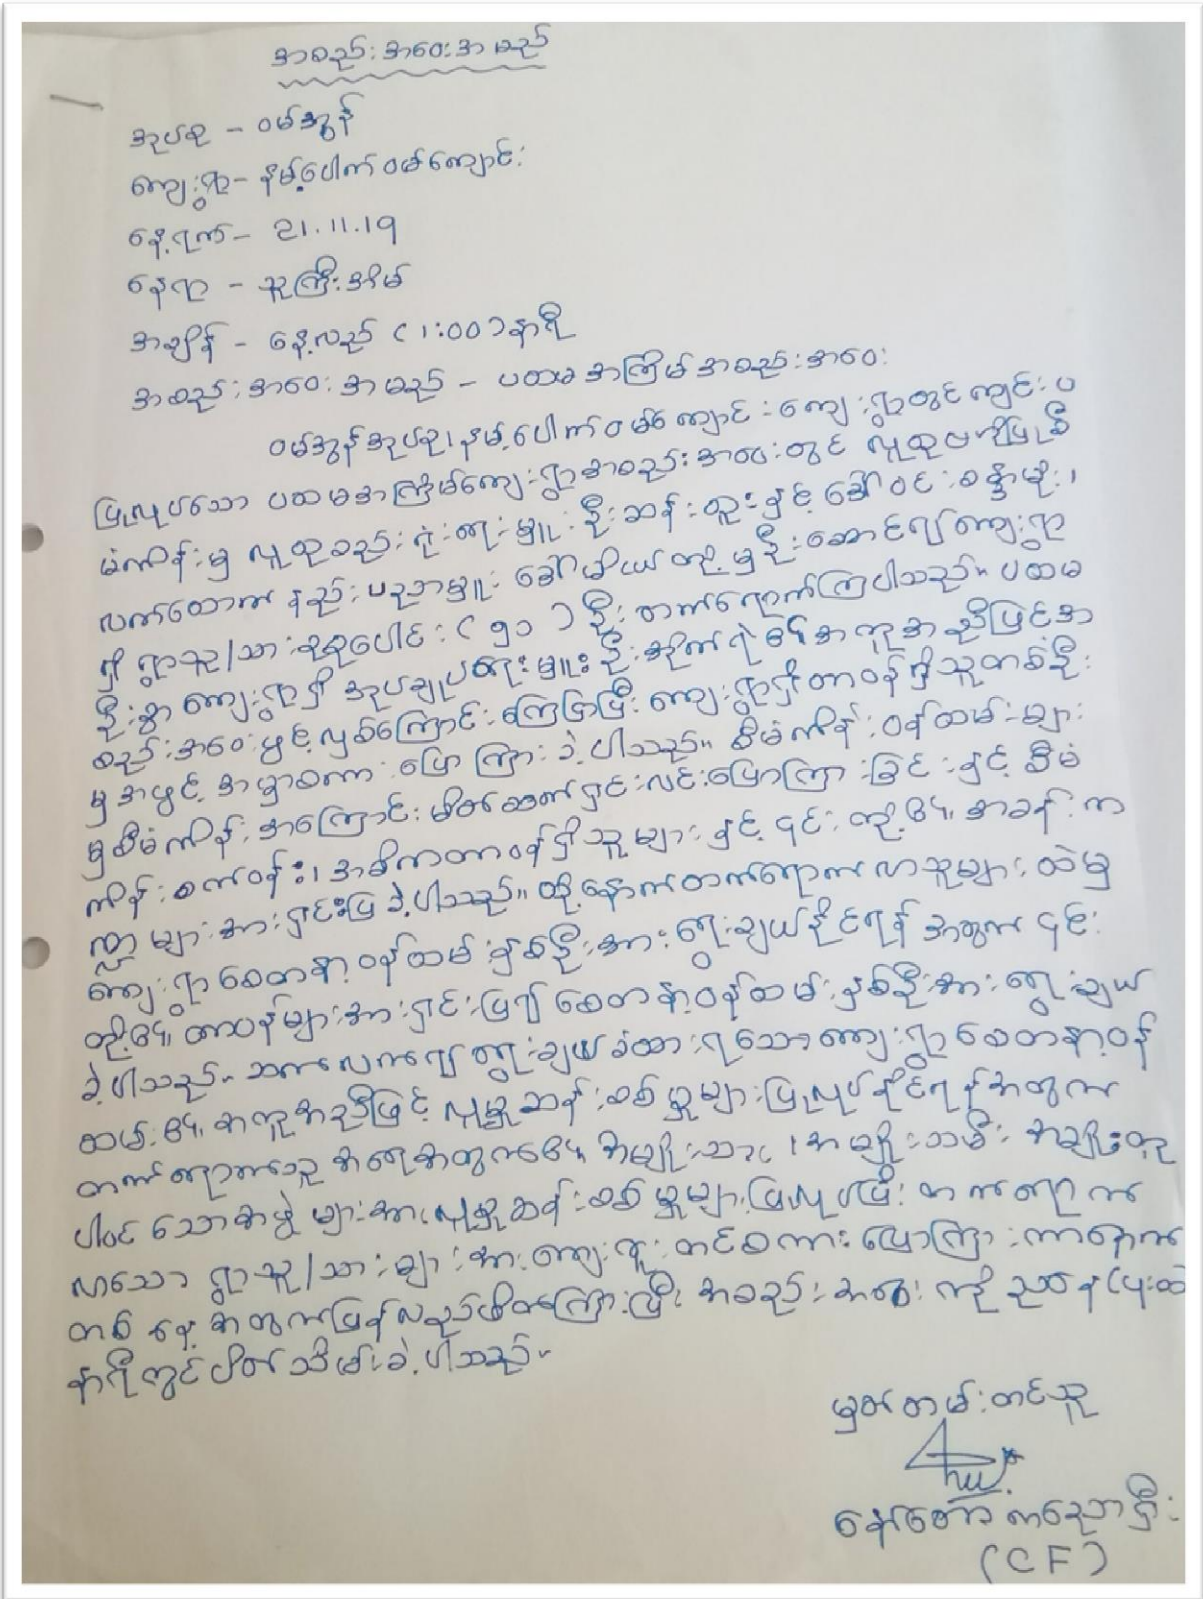 အစည်းအဝေးအမည်
အုပ်စု - ဝမ်အွန်
ကျေးရွာ - နမ့်ပေါက်ဝမ်ကျောင်း
နေ့ရက် - 21.11.19
နေရာ - သူကြီးအိမ်
အချိန် - နေ့လည် (1:00) နာရီ
အစည်းအဝေးအမည် - ပထမအကြိမ်အစည်းအဝေး
ဝမ်အွန်အုပ်စု၊ နမ့်ပေါက်ဝမ်ကျောင်းကျေးရွာတွင်ကျင်းပ
ပြုလုပ်သော ပထမအကြိမ်ကျေးရွာအစည်းအဝေးတွင် လူထုဗဟိုပြုစီ
မံကိန်းမှ လူထုစည်းရုံးရေးမှူး ဦးဆန်းထူးနှင့် ဒေါ်ဝင်းစန္ဒာမိုး၊
လက်ထောက်နည်းပညာမှူး ဒေါ်မိငယ်တို့မှဦးဆောင်၍ကျေးရွာ
ရှိ ရွာသူ/သားစုစုပေါင်း ( ၅၁ ) ဦး တက်ရောက်ကြပါသည်။ ပထမ
ဦးစွာ ကျေးရွာရှိ အုပ်ချုပ်ရေးမှူး ၏အကူအညီဖြင့်အ
စည်းအဝေးဖွင့်လှစ်ကြောင်းကြေငြာပြီး ကျေးရွာရှိတာဝန်ရှိသူတစ်ဦး
မှအဖွင့်အမှာစကားပြောကြားခဲ့ပါသည်။ စီမံကိန်းဝန်ထမ်းများ
မှစီမံကိန်းအကြောင်းမိတ်ဆက်ရှင်းလင်းပြောကြားခြင်းနှင့် စီမံ
ကိန်းစက်ဝန်း၊ အဓိကတာဝန်ရှိသူများနှင့်၎င်းတို့၏ အခန်းက
ဏ္ဍများအားရှင်းပြခဲ့ပါသည်။ ထို့နောက်တက်ရောက်လာသူများထဲမှ
ကျေးရွာစေတနာ့ဝန်ထမ်းနှစ်ဦးအားရွေးချယ်နိုင်ရန်အတွက် ၎င်း
တို့၏ တာဝန်များအားရှင်းပြ၍ စေတနာ့ဝန်ထမ်းနှစ်ဦးအားရွေးချယ်
ခဲ့ပါသည်။ ဆက်လက်၍ရွေးချယ်ခံထားရသောကျေးရွာစေတနာ့ဝန်
ထမ်း၏ အကူအညီဖြင့် လူမှုဆန်းစစ်မှုများပြုလုပ်နိုင်ရန်အတွက်
တက်ရောက်သူအရေအတွက်၏ အမျိုးသား၊ အမျိုးသမီး
ပါဝင်သောအဖွဲ့များအားလူမှုဆန်းစစ်မှုများပြုလုပ်ပြီး တက်ရောက်
လာသော ရွာသူ/သားများအားကျေးဇူးတင်စကားပြောကြားကာနောက်
တစ်နေ့အတွက်ပြန်လည်ဖိတ်ကြားပြီး အစည်းအဝေးကို ညနေ
နာရီတွင်ပိတ်သိမ်းခဲ့ပါသည်။
မှတ်တမ်းတင်သူ
(CF)